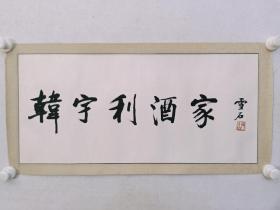 韓宇利酒家
雪石